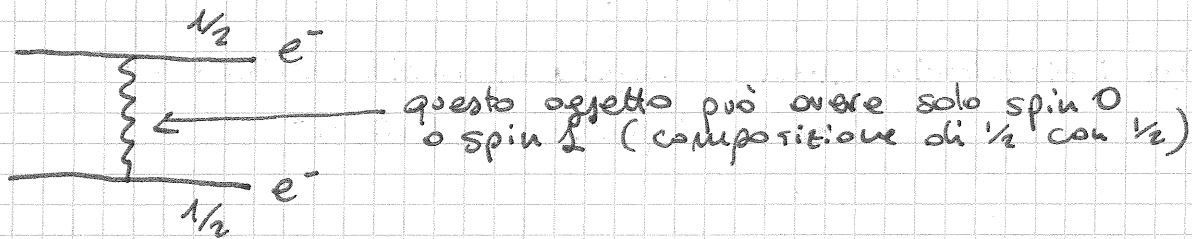 1/2 e⁻
questo oggetto può avere solo spin 0
o spin 1 (composizione di 1/2 con 1/2)
e⁻
1/2